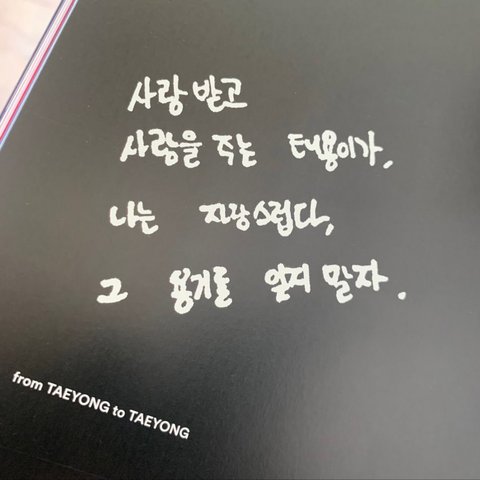 사랑 받고
사랑을 주는 태용이가,
나는 자랑스럽다,
그 용기를 잊지 말자.
from TAEYONG to TAEYONG